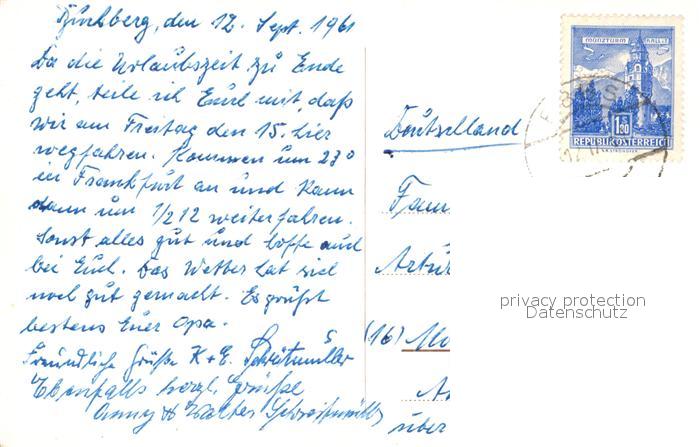 Puchberg, den 12. Sept. 1961
Da die Urlaubszeit zu Ende
geht, teile ich Euch mit, daß
wir am Freitag den 15. hier
wegfahren. Kommen um 23°
in Frankfurt an und kann
dann um 1/2 12 weiterfahren.
Sonst alles gut und hoffe auch
bei Euch. Das Wetter hat sich
noch gut gemacht. Es grüßt
bestens Euer Opa.
Freundliche Grüße K + E.
Ebenfalls herzl. Grüße
Anny & Walter
MÜNZTURM HALL i. T.
S 1.80
REPUBLIK ÖSTERREICH
Deutschland
Fam
Artur
(16) Mo
A
über
privacy protection
Datenschutz